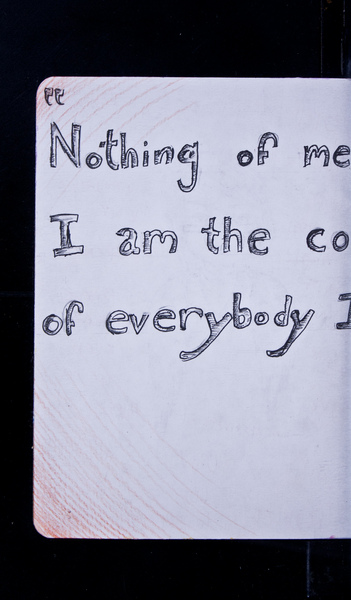 "
Nothing of me
I am the co
of everybody I